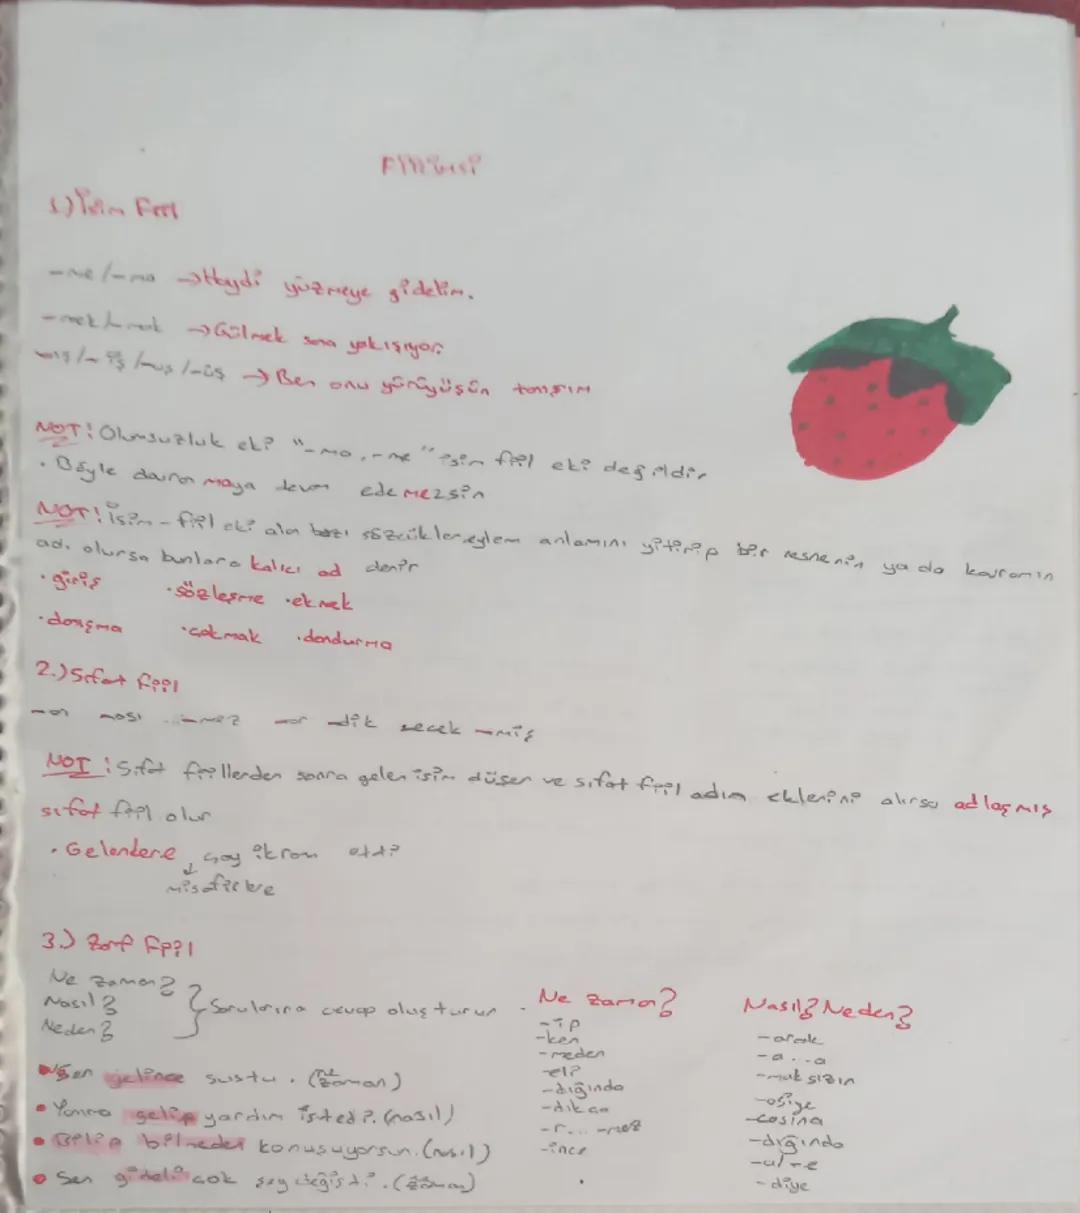 Fiilimsi
1.) İsim Fiil
-me/-ma → Haydi yüzmeye gidelim.
-mek/-mak → Gülmek sana yakışıyor.
-ış/-iş/-uş/-üş → Ben onu yürüyüşün
NOT! Olumsuzluk eki "-ma,-me" isim fiil eki değildir
• Böyle davranmaya devam edemezsin
NOT! İsim-fiil eki alan bazı sözcükler eylem anlamını yitirip bir nesnenin ya da kavramın
adı olursa bunlara kalıcı ad denir
• giriş • sözleşme • ekmek
• danışma • çakmak • dondurma
2.) Sıfat fiil
-an -ası -mez -ar -dik -ecek -miş
NOT! Sıfat fiillerden sonra gelen isim düşer ve sıfat fiil adın eklerini alırsa adlaşmış
sıfat fiil olur
• Gelenlere çay ikram etti
↓
misafirlere
3.) Zarf fiil
Ne zaman?
Nasıl?
Neden?
} Sorularına cevap oluşturur
Ne zaman?
-ip
-ken
-meden
-eli
-dığında
-dıkça
-r... -mez
-ince
Nasıl? Neden?
-arak
-a...-a
-maksızın
-casına
-dığında
-a/-e
-diye
• gelince sustu. (ne zaman)
• Yanıma gelip yardım istedi. (nasıl)
• Bilip bilmeden konuşuyorsun. (nasıl)
• Sen gideli çok şey değişti. (zaman)